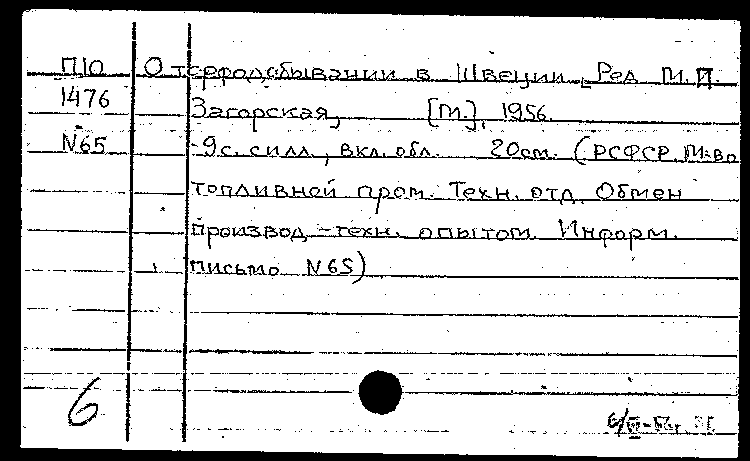 П10 О торфодобывании в Швеции. Ред М.П.
1476 Загорская, [М.], 1956.
N65 9с. силл, вкл. обл. 20см. (РСФСР. М-во
топливной пром. Техн. отд. Обмен
производ.-техн. опытом. Информ.
письмо N65)
6